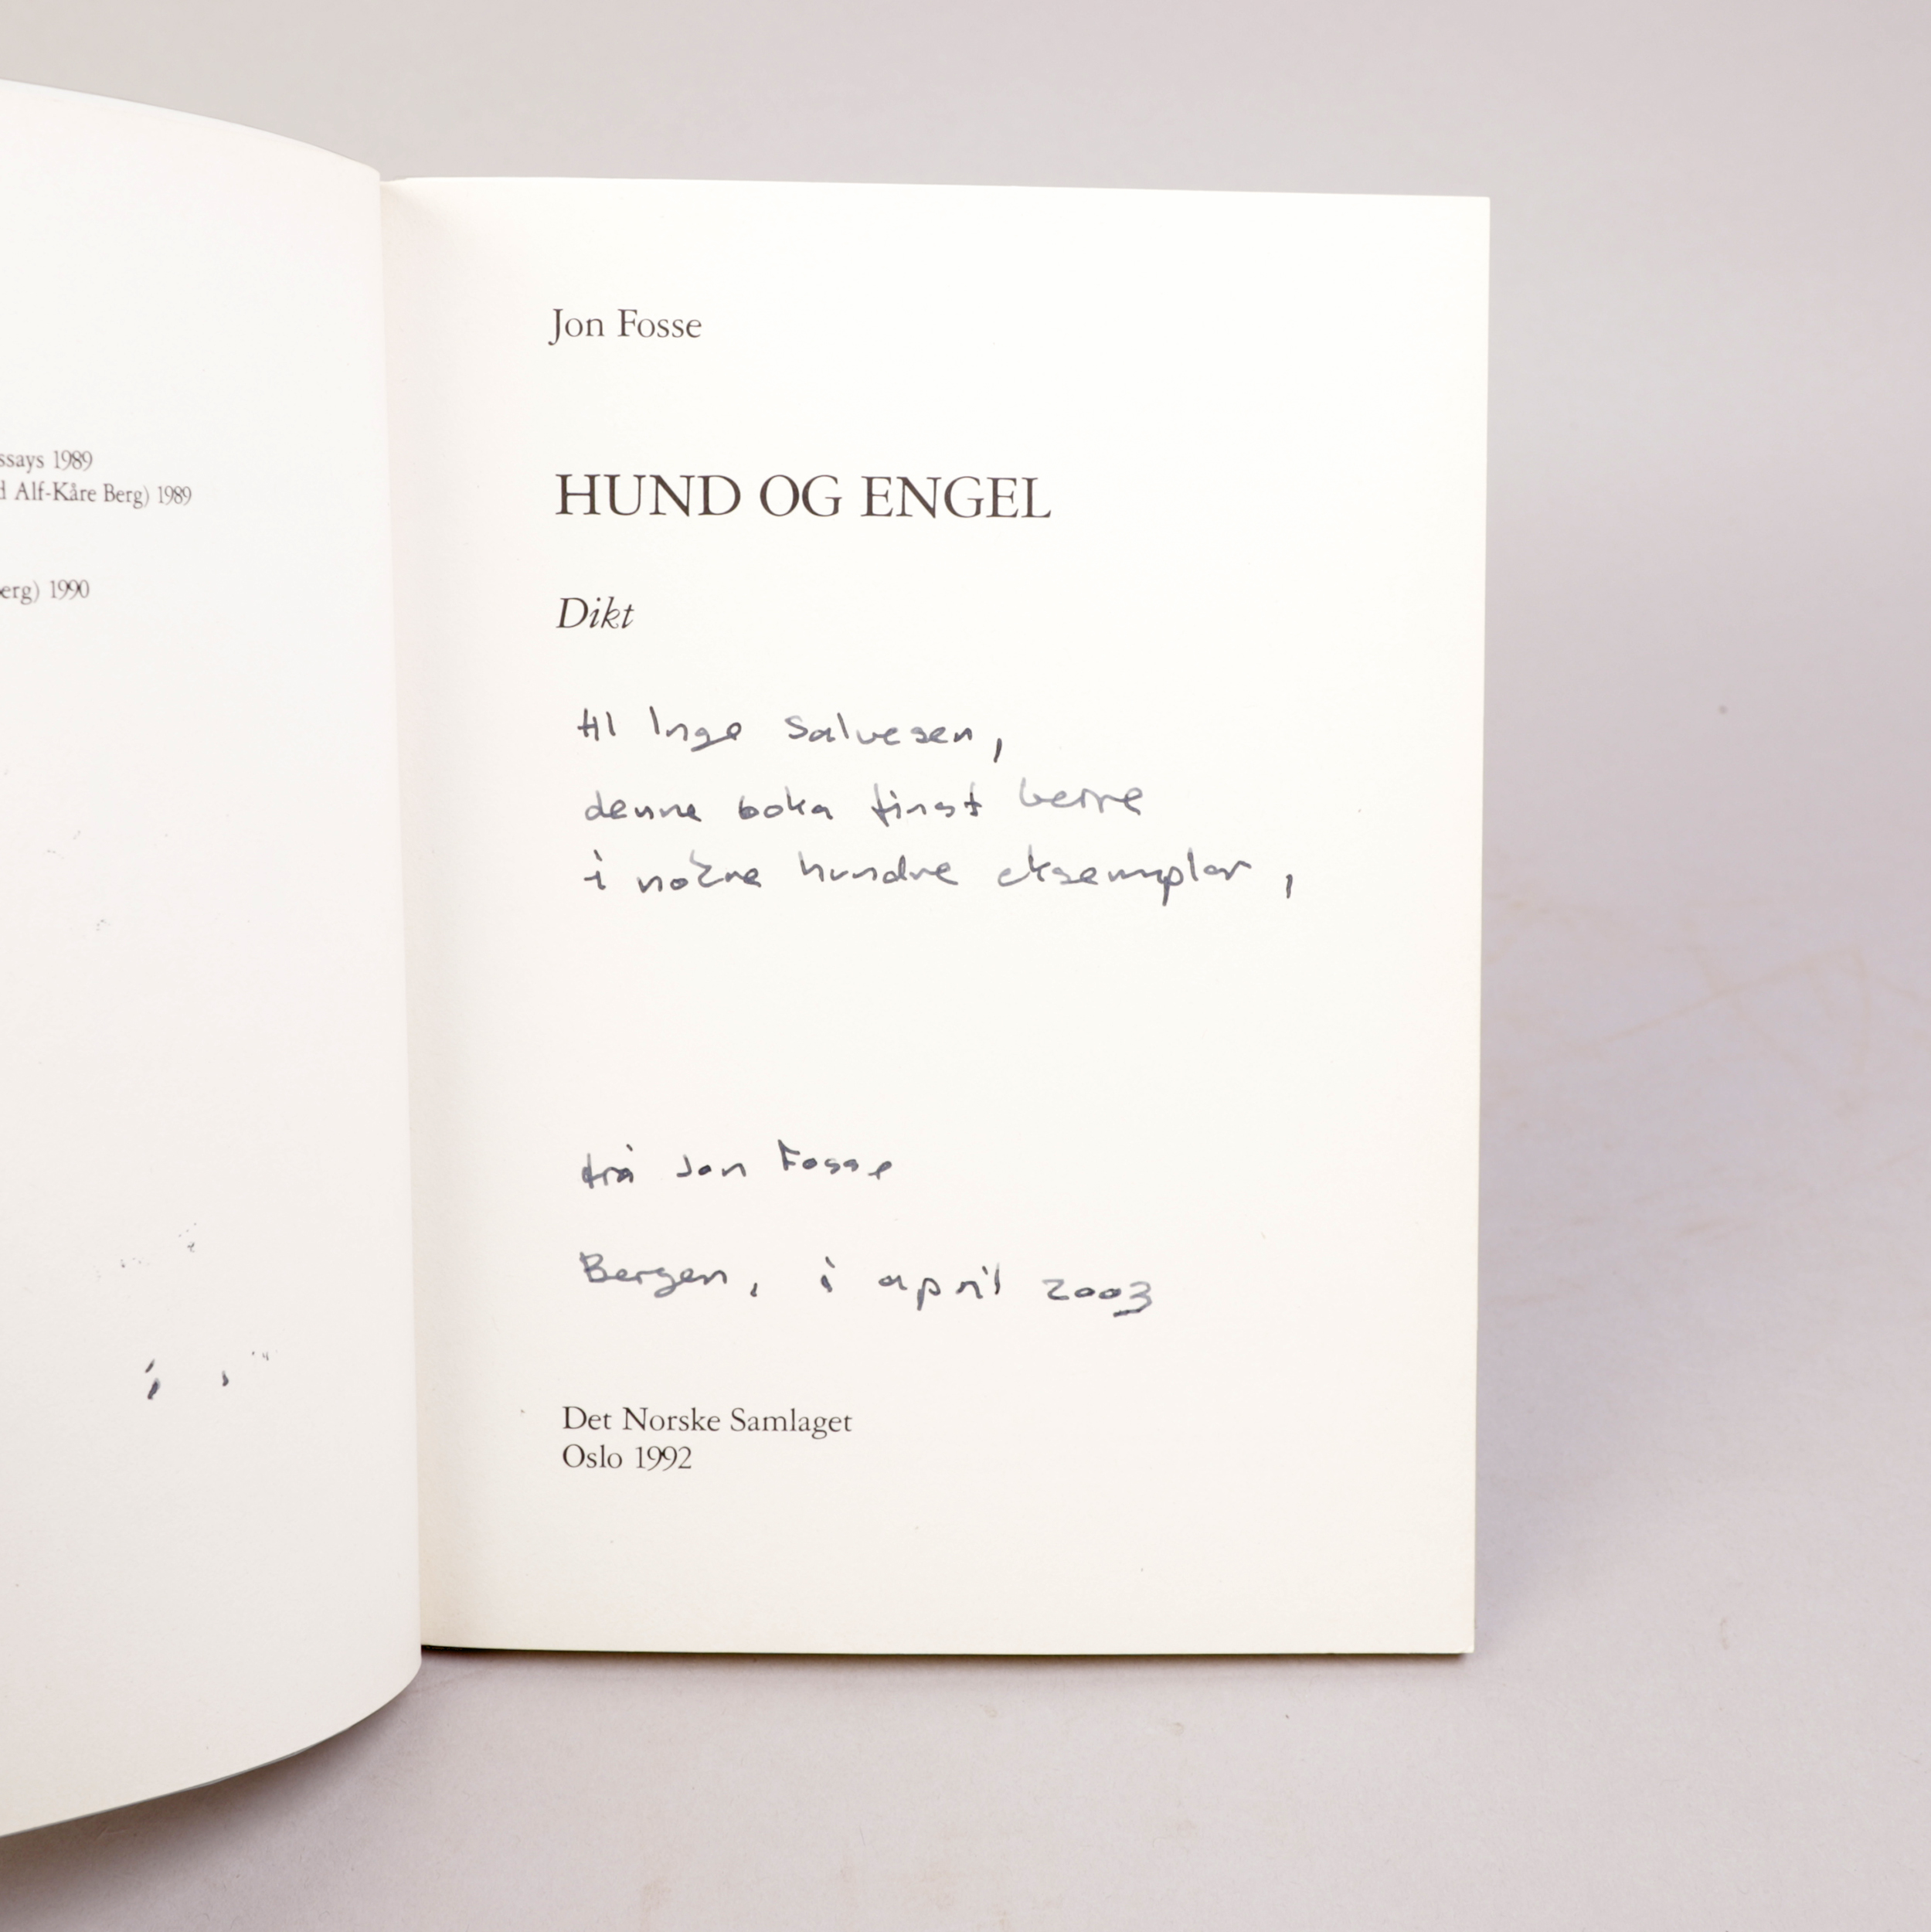 ssays 1989
d Alf-Kåre Berg) 1989
erg) 1990
Jon Fosse
HUND OG ENGEL
Dikt
til Inge Salvesen,
denne boka finst berre
i nokre hundre eksemplar,
frå Jon Fosse
Bergen, i april 2003
Det Norske Samlaget
Oslo 1992